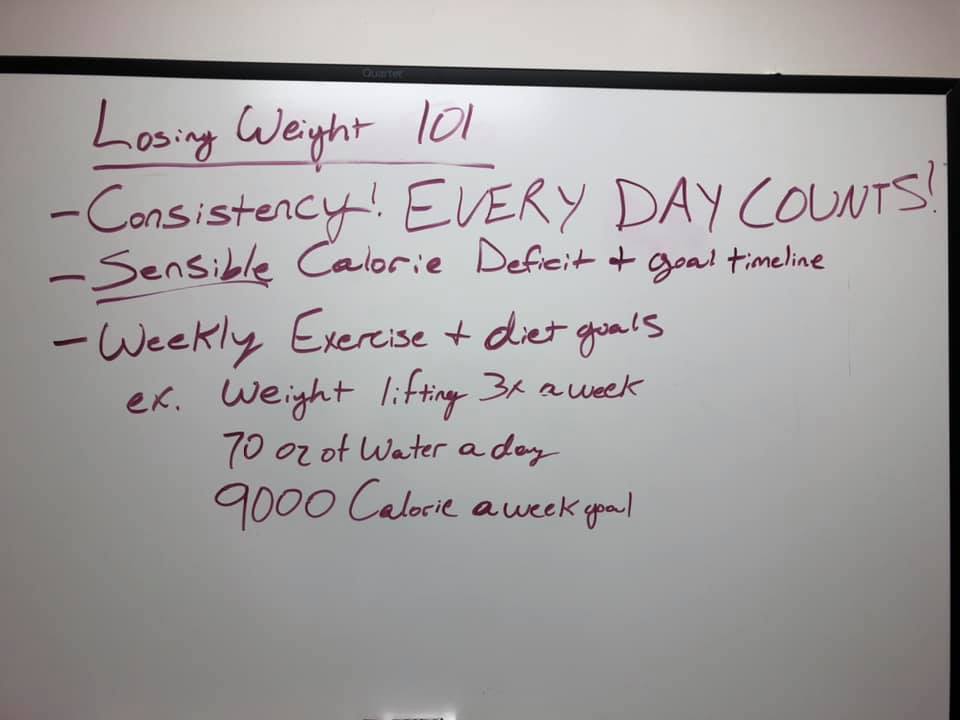 Quartet
Losing Weight 101
- Consistency! EVERY DAY COUNTS!
- Sensible Calorie Deficit + goal timeline
- Weekly Exercise + diet goals
ex. Weight lifting 3x a week
70 oz of Water a day
9000 Calorie a week goal